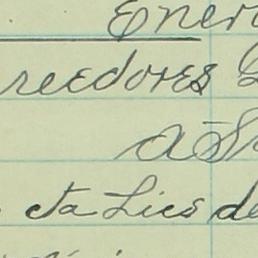 Ener
reedores
a S
cta Lics de